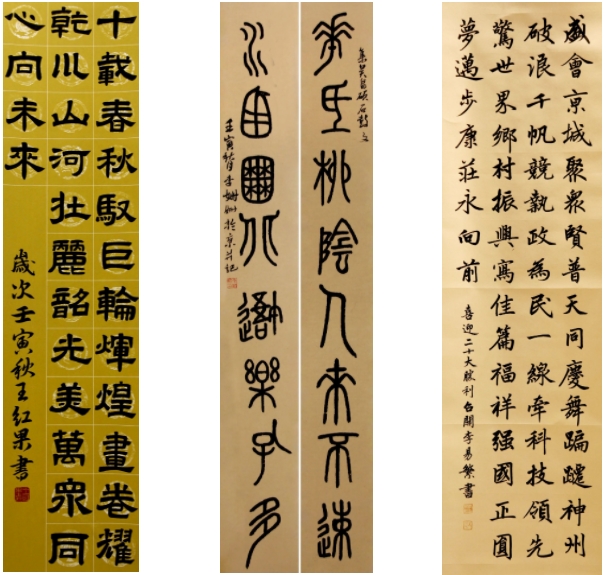 十載春秋馭巨輪輝煌畫卷耀
乾川山河壯麗韶光美萬衆同
心向未來
歲次壬寅秋王紅果書
桃陰人來不速
集吳昌碩石鼓文
樂孔多
壬寅秋月李姍姍於京并記
盛會京城聚衆賢普天同慶舞蹁躚神州
破浪千帆競執政為民一線牽科技領先
驚世界鄉村振興寫佳篇福祥强國正圓
夢邁步康莊永向前
喜迎二十大勝利召開李易繁書